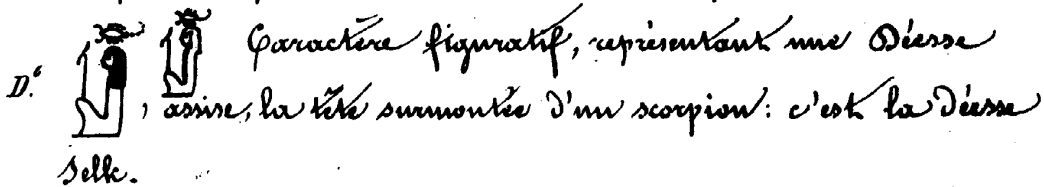 Caractère figuratif, représentant une Déesse
D.° , assise, la tête surmontée d'un scorpion : c'est la Déesse
Selk.